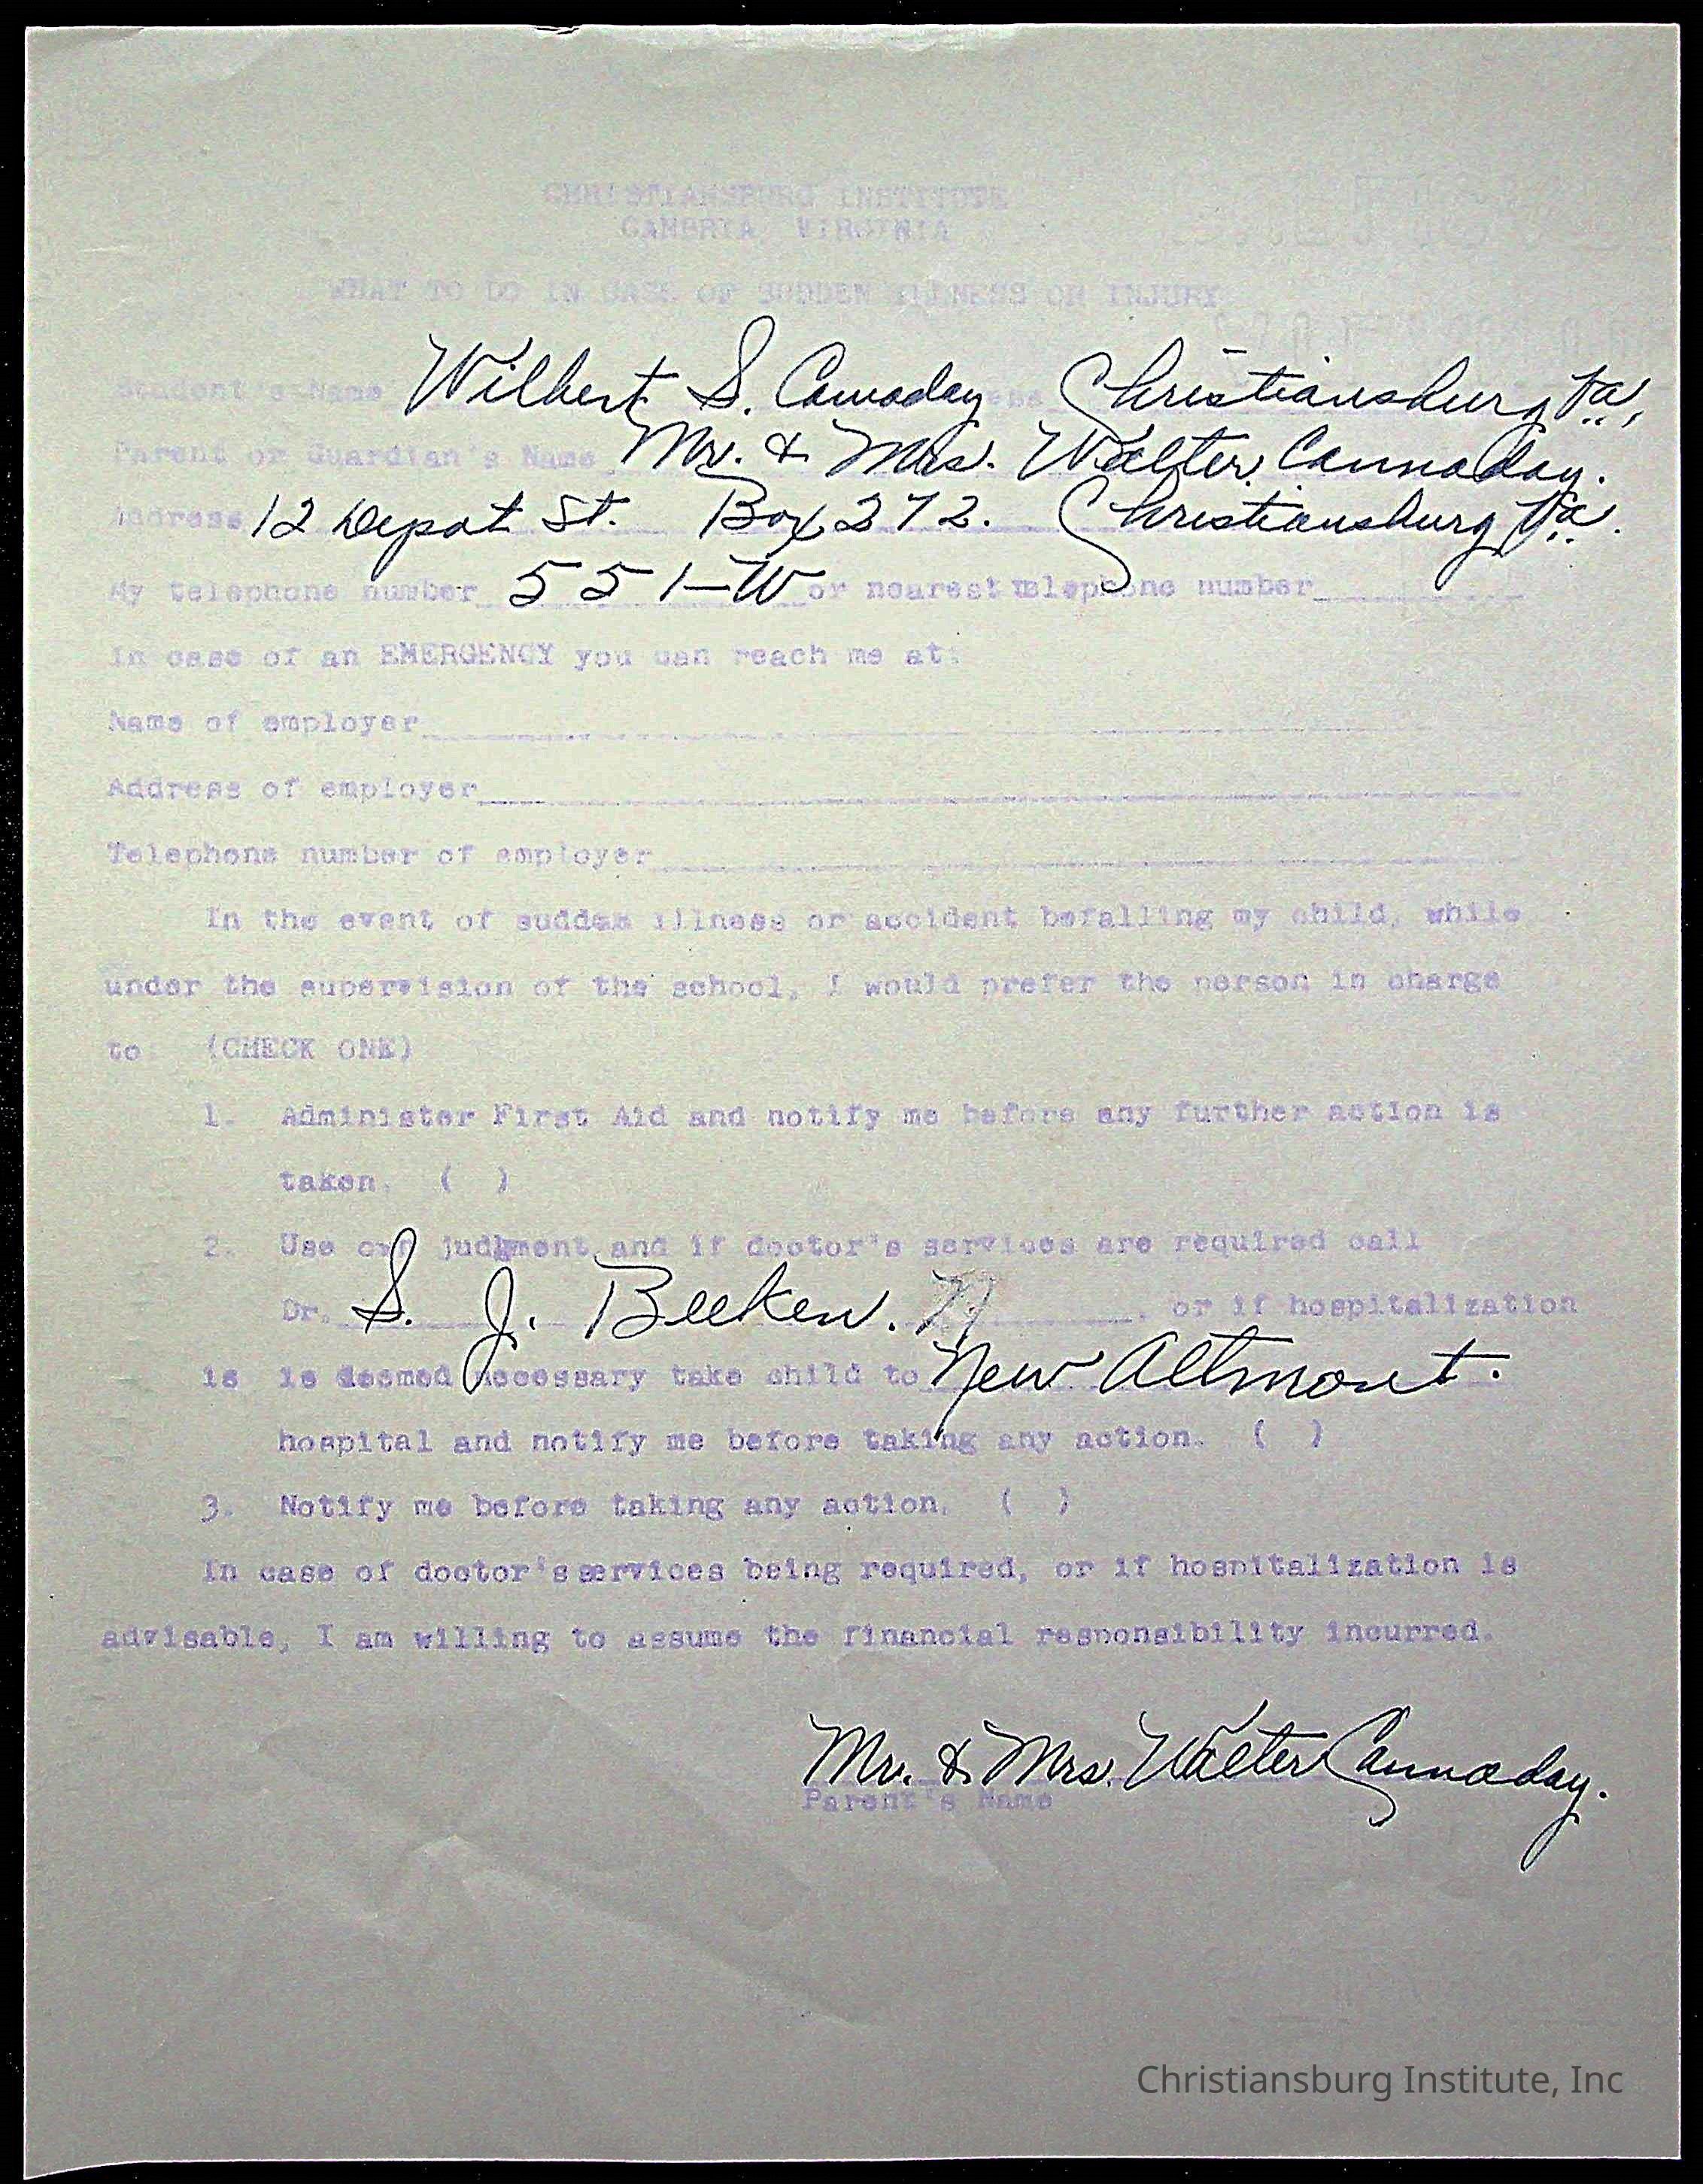 CHRISTIANSBURG INSTITUTE
CAMBRIA, VIRGINIA
WHAT TO DO IN CASE OF SUDDEN ILLNESS OR INJURY
Student's Name Wilbert S. Cannaday Christiansburg Va.,
Parent or Guardian's Name Mr. & Mrs. Walter Cannaday.
Address 12 Depot St. Box 272. Christiansburg Va.
My telephone number 551-W or nearest telephone number
In case of an EMERGENCY you can reach me at:
Name of employer
Address of employer
Telephone number of employer
In the event of sudden illness or accident befalling my child, while
under the supervision of the school, I would prefer the person in charge
to (CHECK ONE)
1. Administer First Aid and notify me before any further action is
taken. ( )
2. Use own judgment and if doctor's services are required call
Dr. S. J. Beeken. , or if hospitalization
is is deemed necessary take child to New Altmont.
hospital and notify me before taking any action. ( )
3. Notify me before taking any action. ( )
In case of doctor's services being required, or if hospitalization is
advisable, I am willing to assume the financial responsibility incurred.
Mr. & Mrs. Walter Cannaday.
Parent's Name
Christiansburg Institute, Inc